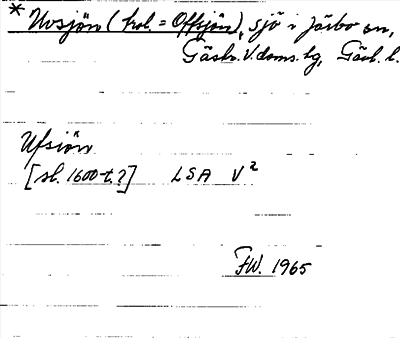 * Uvsjön (trol. = Offsjön), sjö i Järbo sn,
Gästr. V. doms. hg, Gävl. l.
Ufsiön
[sl. 1600-t.?] LSA V²
FW. 1965